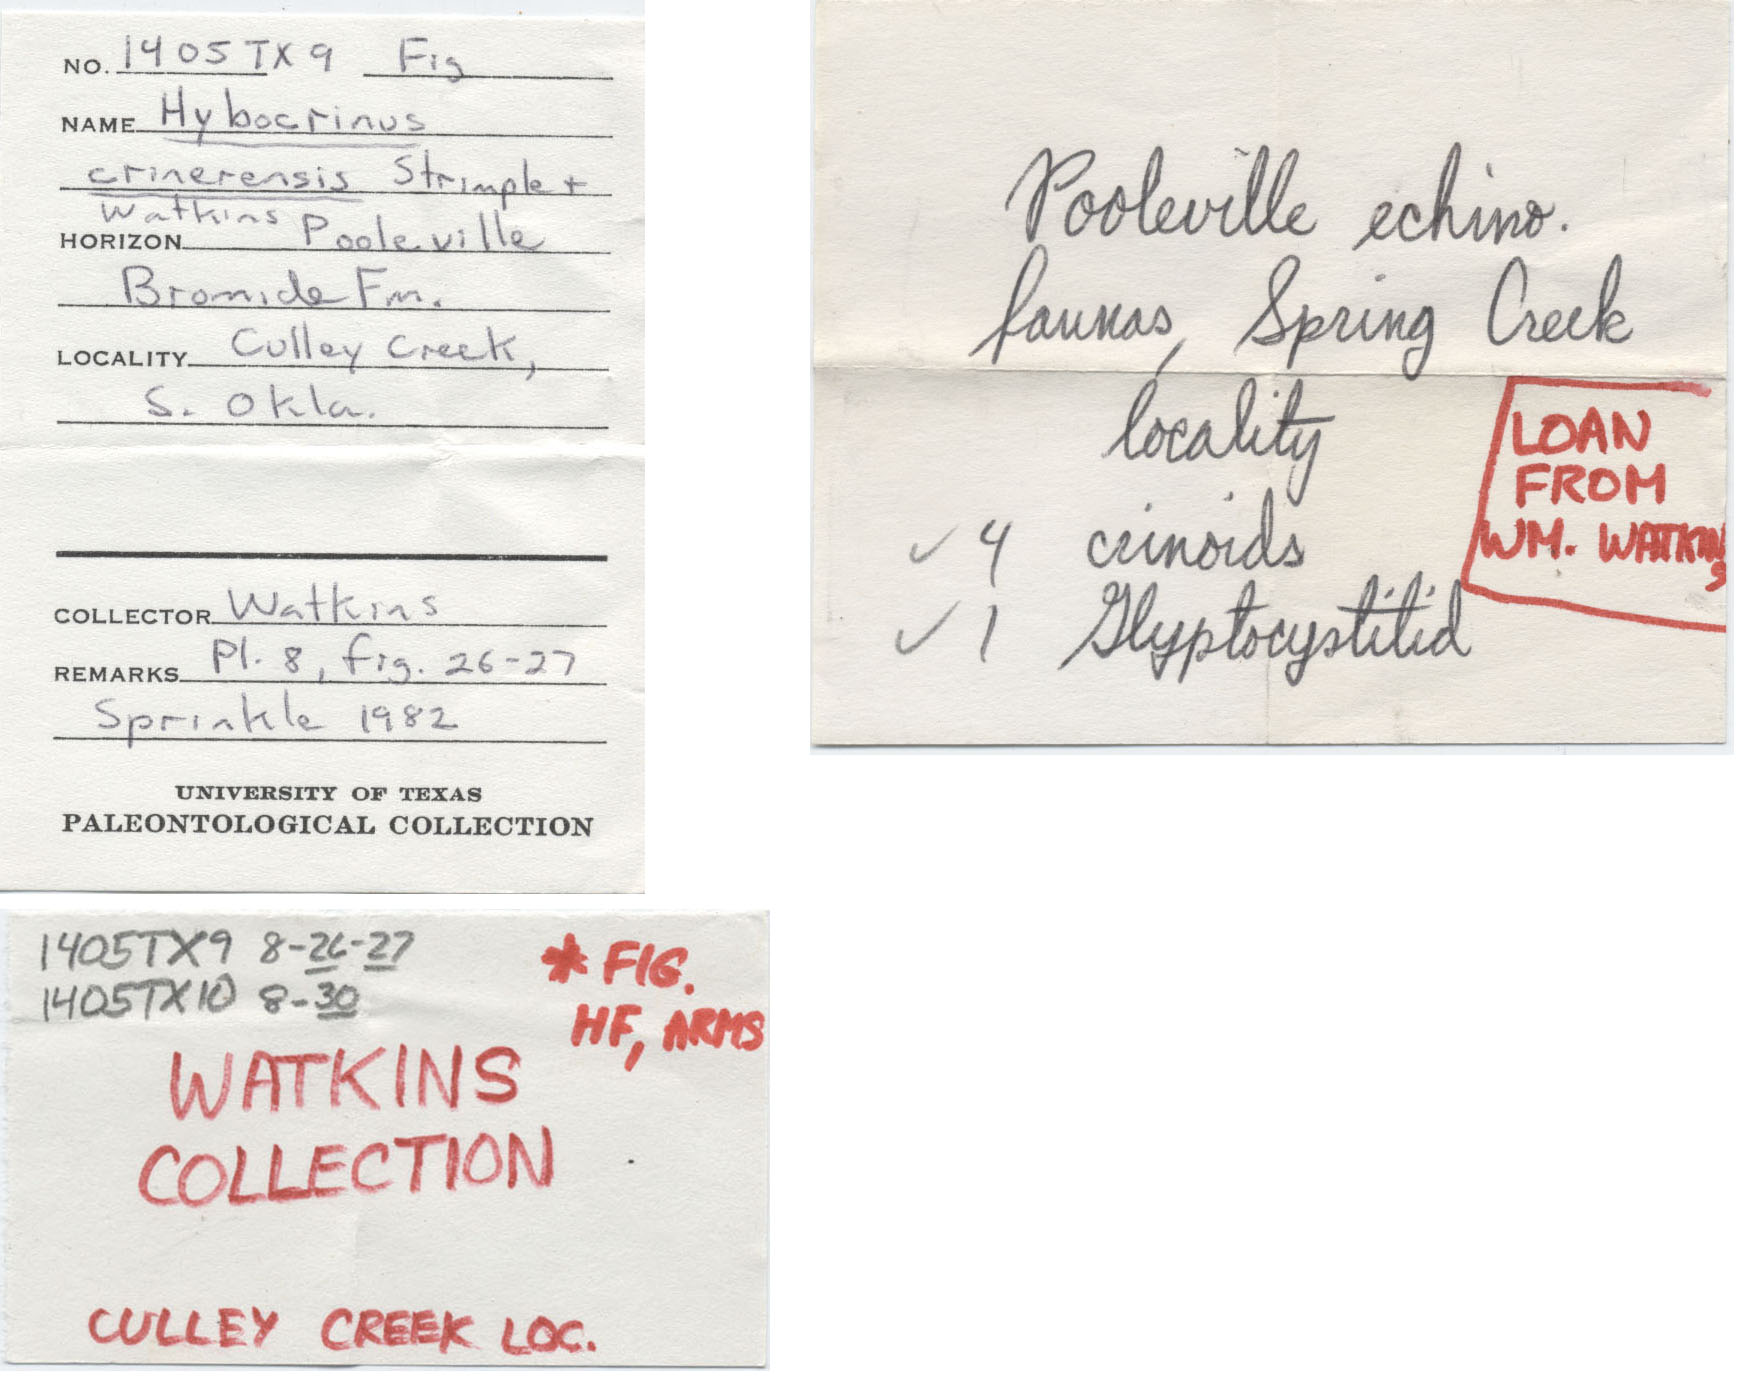 NO. 1405TX9 Fig
NAME Hybocrinus
crinerensis Strimple +
Watkins
HORIZON Pooleville
Bromide Fm.
LOCALITY Culley Creek,
S. Okla.
COLLECTOR Watkins
REMARKS Pl. 8, fig. 26-27
Sprinkle 1982
UNIVERSITY OF TEXAS
PALEONTOLOGICAL COLLECTION
Pooleville echino.
faunas, Spring Creek
locality
✓ 4 crinoids
✓ 1 Glyptocystitid
LOAN
FROM
WM. WATKINS
1405TX9 8-26-27
1405TX10 8-30
* FIG.
HF, ARMS
WATKINS
COLLECTION
CULLEY CREEK LOC.